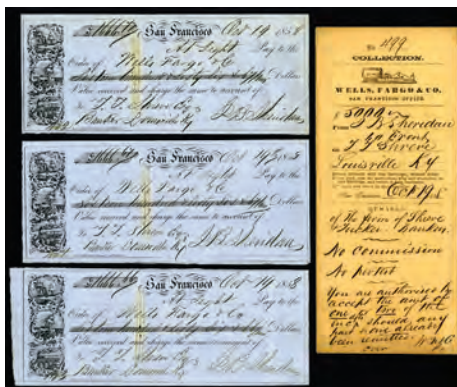 San Francisco Oct 19 1858
At Sight Pay to the
Order of Wells Fargo & Co
Dollars
Value received and charge the same to account of
To T. T. Shreve Esq
Banker Louisville Ky J B Sheridan
San Francisco Oct 19 1858
At Sight Pay to the
Order of Wells Fargo & Co
Dollars
Value received and charge the same to account of
To T. T. Shreve Esq
Banker Louisville Ky J B Sheridan
San Francisco Oct 19 1858
At Sight Pay to the
Order of Wells Fargo & Co
Dollars
Value received and charge the same to account of
To T. T. Shreve Esq
Banker Louisville Ky J B Sheridan
No 499
COLLECTION.
WELLS, FARGO & CO.
SAN FRANCISCO OFFICE.
$ 5000
From J B Sheridan
On T T Shreve
Louisville Ky
Oct 19
REMARKS
of the firm of Shreve
& Tucker Bankers.
No commission
No protest
You are authorised to
accept the any of
one or two of the
should any
part have already
been remitted.